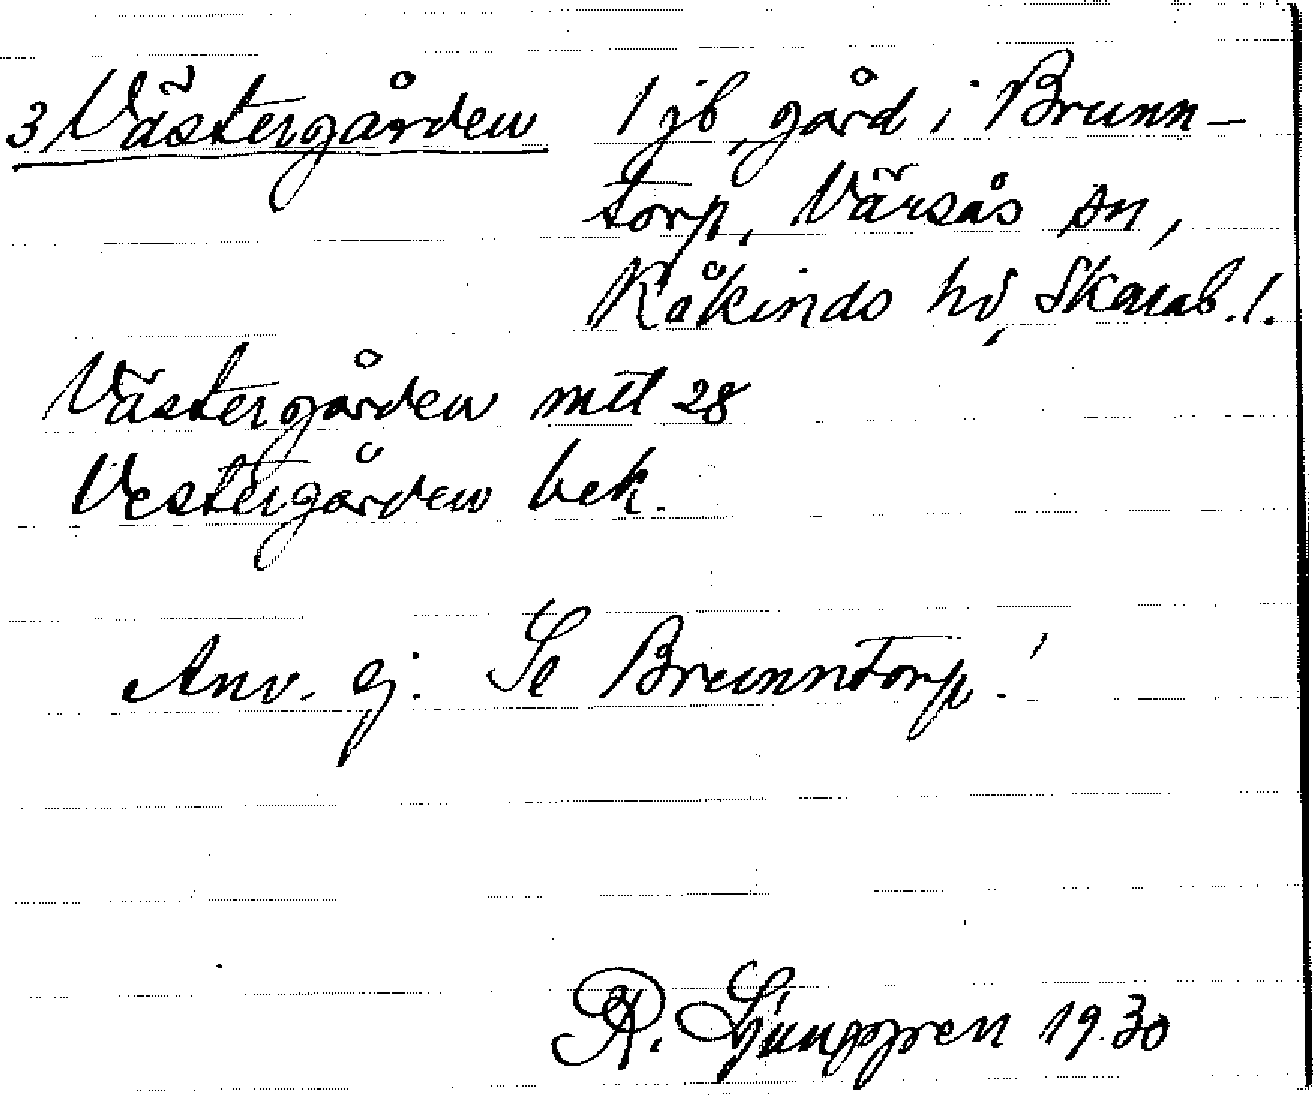 3 Västergården 1 jb, gård i Brunn-
torp, Värsås sn,
Kåkinds hd, Skarab. l.
Västergården mtl 28
Vestergården bek.
Anv. ej. Se Brunntorp!
R. Ljunggren 1930